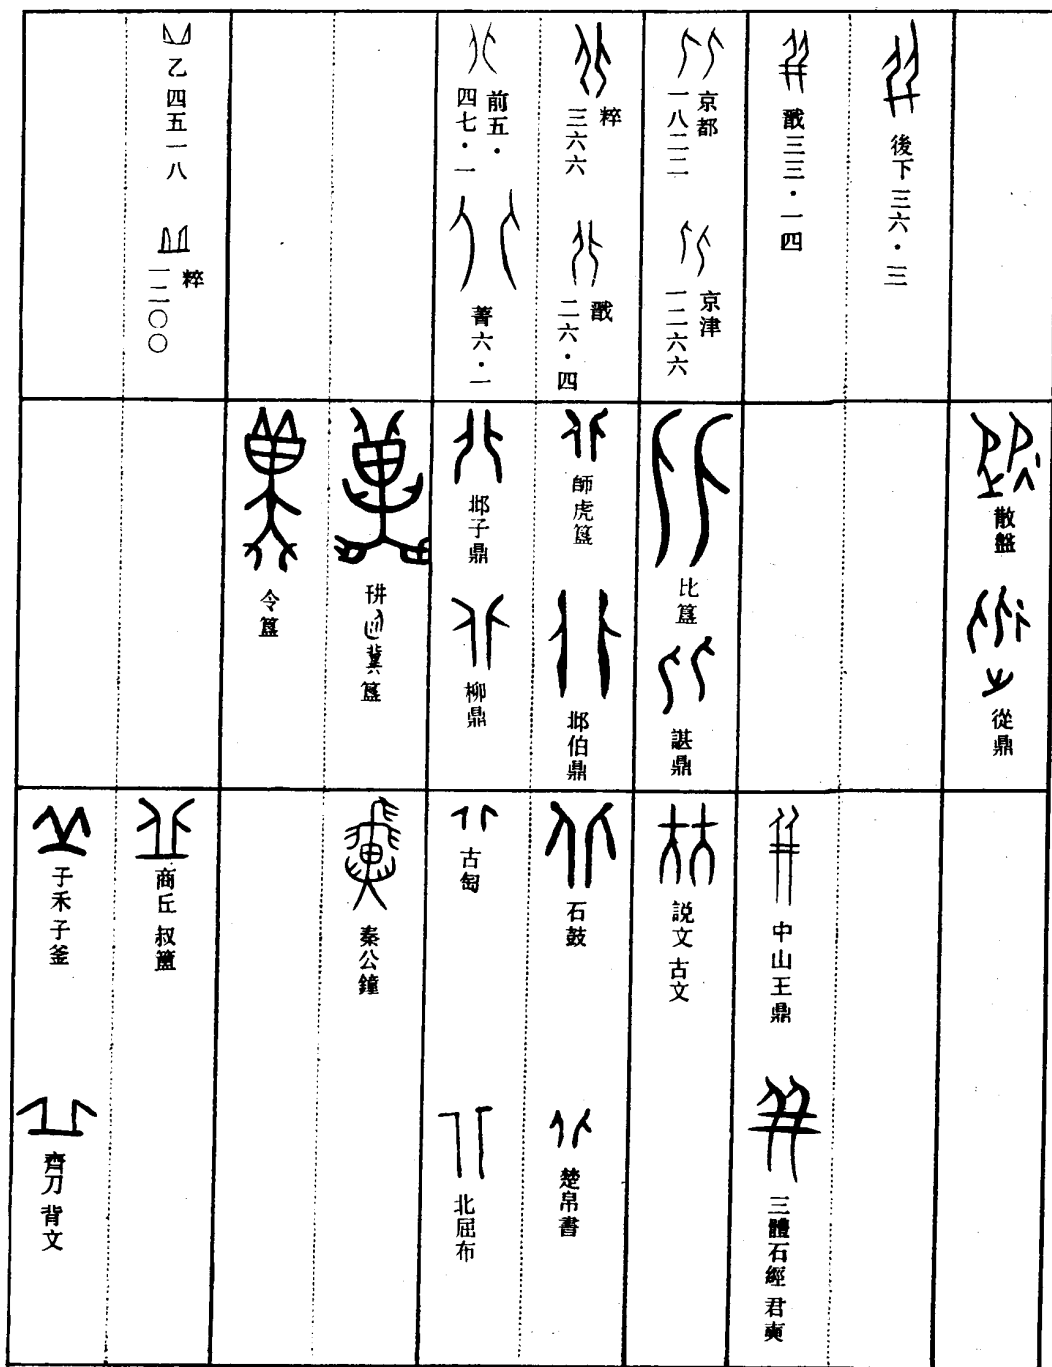 後下三六・三
戩三三・一四
京都
一八二二
京津
一二六六
粹
三六六
戩
二六・四
前五・
四七・一
菁六・一
乙四五一八
粹
一二〇〇
散盤
從鼎
比簋
諶鼎
師虎簋
邶伯鼎
邶子鼎
柳鼎
冀簋
令簋
中山王鼎
三體石經君奭
説文古文
石鼓
楚帛書
古匋
北屈布
秦公鐘
商丘叔簠
子禾子釜
齊刀背文